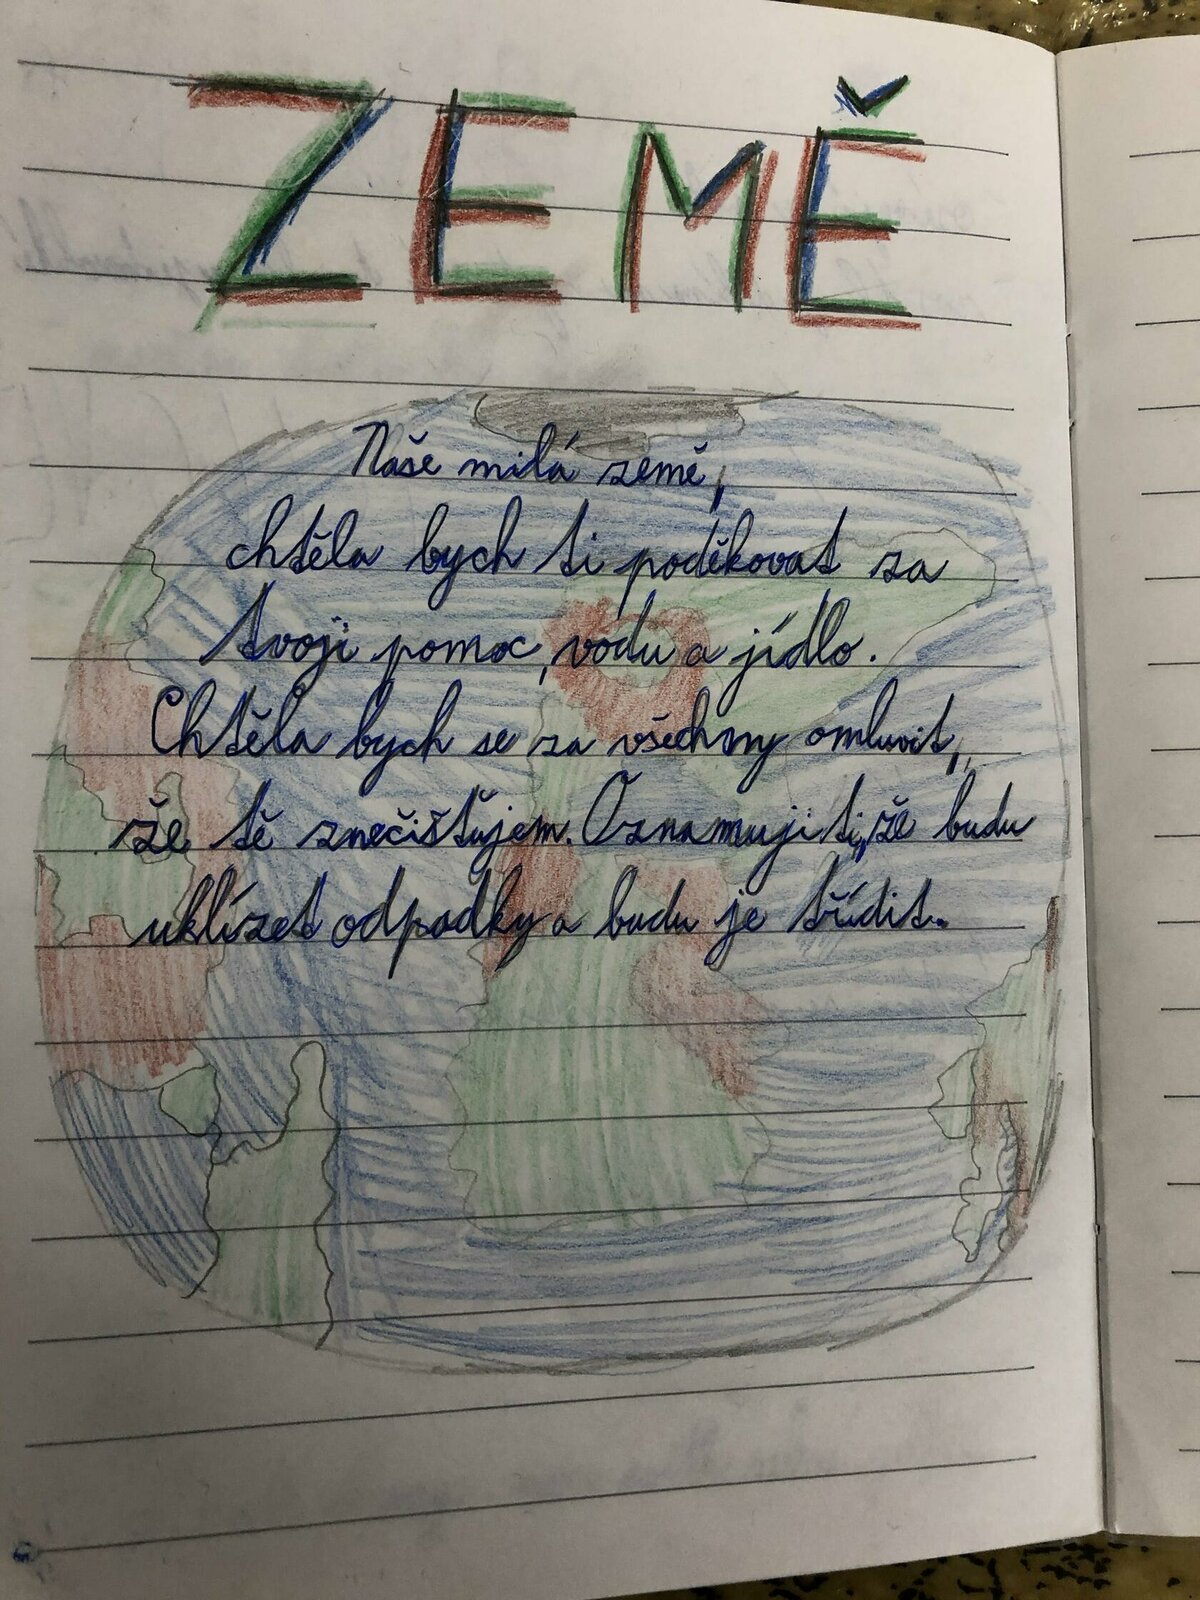 ZEMĚ
Naše milá země,
chtěla bych ti poděkovat za
tvoji pomoc, vodu a jídlo.
Chtěla bych se za všechny omluvit,
že tě znečišťujem. Oznamuji ti, že budu
uklízet odpadky a budu je třídit.